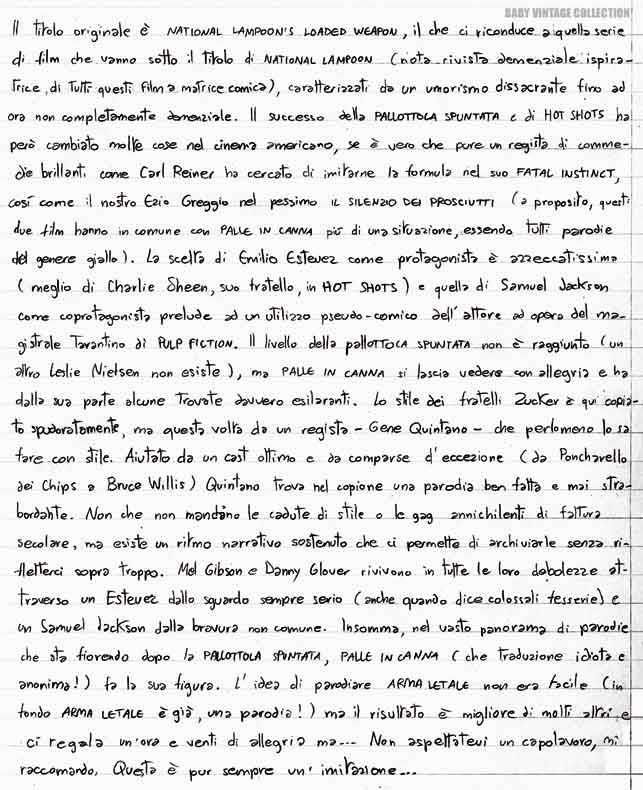 BABY VINTAGE COLLECTION
Il titolo originale è NATIONAL LAMPOON'S LOADED WEAPON, il che ci riconduce a quella serie
di film che vanno sotto il titolo di NATIONAL LAMPOON (nota rivista demenziale ispira-
trice, di tutti questi film a matrice comica), caratterizzati da un umorismo dissacrante fino ad
ora non completamente demenziale. Il successo della PALLOTTOLA SPUNTATA e di HOT SHOTS ha
però cambiato molte cose nel cinema americano, se è vero che pure un regista di comme-
die brillanti come Carl Reiner ha cercato di imitarne la formula nel suo FATAL INSTINCT,
così come il nostro Ezio Greggio nel pessimo IL SILENZIO DEI PROSCIUTTI (a proposito, questi
due film hanno in comune con PALLE IN CANNA più di una situazione, essendo tutti parodie
del genere giallo). La scelta di Emilio Estevez come protagonista è azzeccatissima
(meglio di Charlie Sheen, suo fratello, in HOT SHOTS) e quella di Samuel Jackson
come coprotagonista prelude ad un utilizzo pseudo-comico dell'attore ad opera del ma-
gistrale Tarantino di PULP FICTION. Il livello della PALLOTTOLA SPUNTATA non è raggiunto (un
altro Leslie Nielsen non esiste), ma PALLE IN CANNA si lascia vedere con allegria e ha
dalla sua parte alcune trovate davvero esilaranti. Lo stile dei fratelli Zucker è qui copia-
to spudoratamente, ma questa volta da un regista - Gene Quintano - che perlomeno lo sa
fare con stile. Aiutato da un cast ottimo e da comparse d'eccezione (da Poncharello
dei Chips a Bruce Willis) Quintano trova nel copione una parodia ben fatta e mai stra-
bordante. Non che non mandino le cadute di stile o le gag annichilenti di fattura
secolare, ma esiste un ritmo narrativo sostenuto che ci permette di archiviarle senza ri-
fletterci sopra troppo. Mel Gibson e Danny Glover rivivono in tutte le loro debolezze at-
traverso un Estevez dallo sguardo sempre serio (anche quando dice colossali fesserie) e
un Samuel Jackson dalla bravura non comune. Insomma, nel vasto panorama di parodie
che sta fiorendo dopo la PALLOTTOLA SPUNTATA, PALLE IN CANNA (che traduzione idiota e
anonima!) fa la sua figura. L'idea di parodiare ARMA LETALE non era facile (in
fondo ARMA LETALE è già, una parodia!) ma il risultato è migliore di molti altri e
ci regala un'ora e venti di allegria ma... Non aspettatevi un capolavoro, mi
raccomando. Questa è pur sempre un'imitazione...